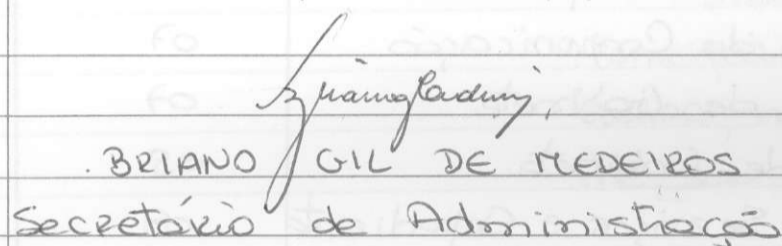 .BRIANO GIL DE MEDEIROS
Secretário de Administração